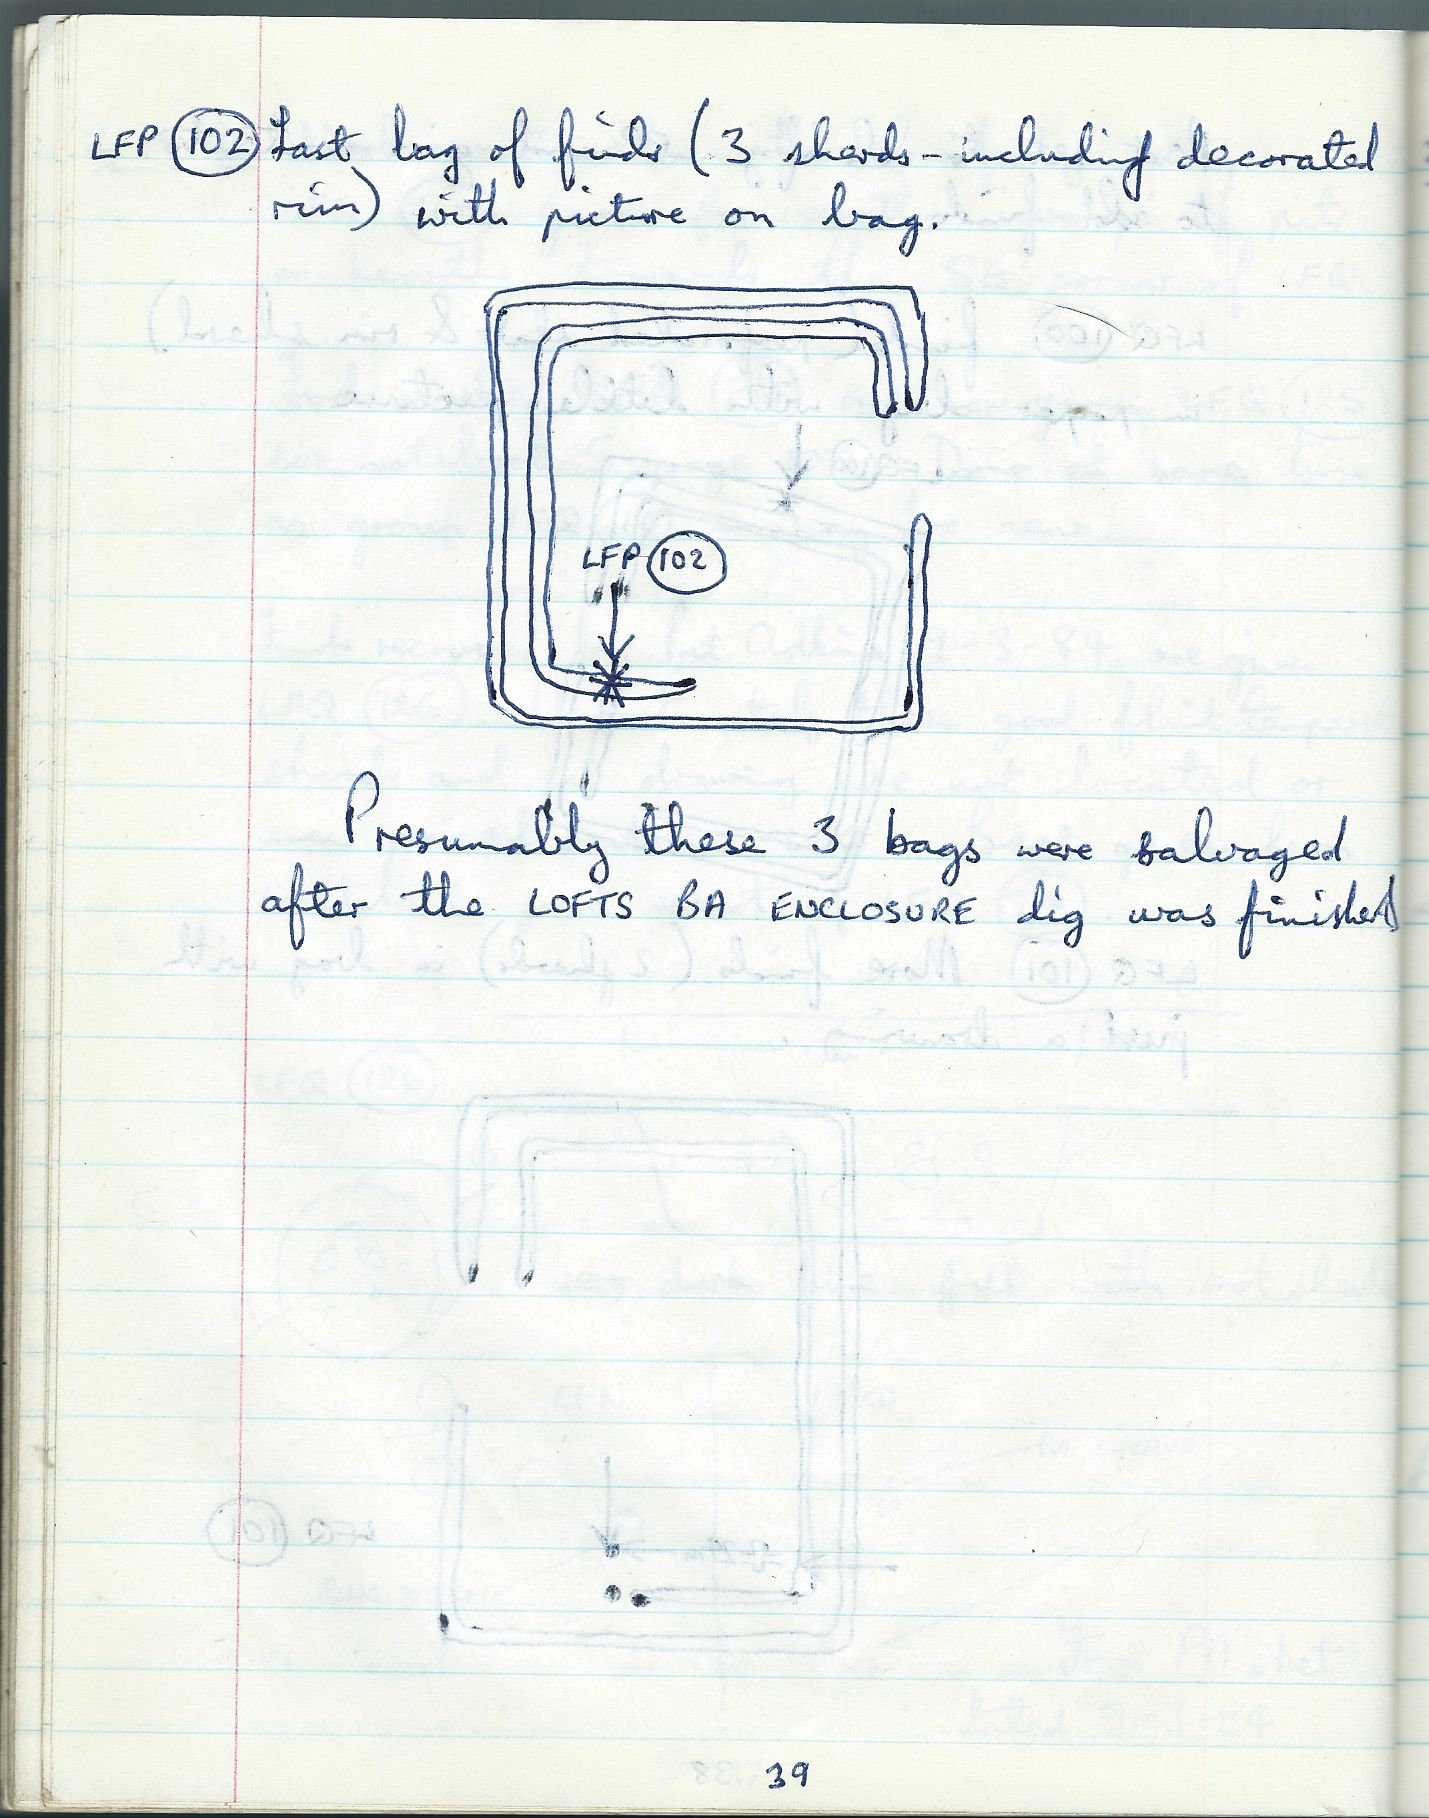 LFP 102 Last bag of finds (3 sherds - including decorated
rim) with picture on bag.
LFP 102
Presumably these 3 bags were salvaged
after the LOFTS BA ENCLOSURE dig was finished
39